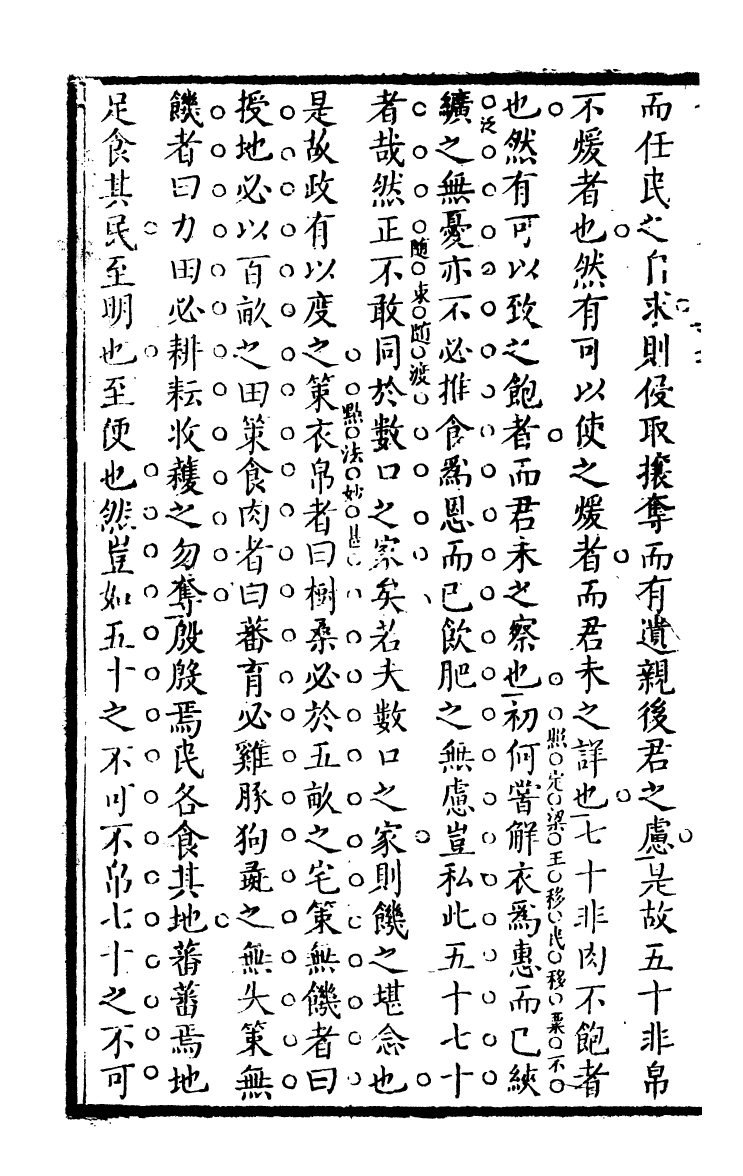 而任民之自求則侵取攘奪而有遺親後君之慮是故五十非帛
不煖者也然有可以使之煖者而君未之詳也七十非肉不飽者
照定梁王移民移粟不
也然有可以致之飽者而君未之察也初何嘗解衣爲惠而已綊
泛
纊之無憂亦不必推食爲恩而已飲肥之無慮豈私此五十七十
隨束隨渡
者哉然正不敢同於數口之家矣若夫數口之家則饑之堪念也
點法妙甚
是故政有以度之策衣帛者曰樹桑必於五畝之宅策無饑者曰
授地必以百畝之田策食肉者曰蕃育必雞豚狗彘之無失策無
饑者曰力田必耕耘收穫之勿奪殷殷焉民各食其地蕃蕃焉地
足食其民至明也至便也然豈如五十之不可不帛七十之不可